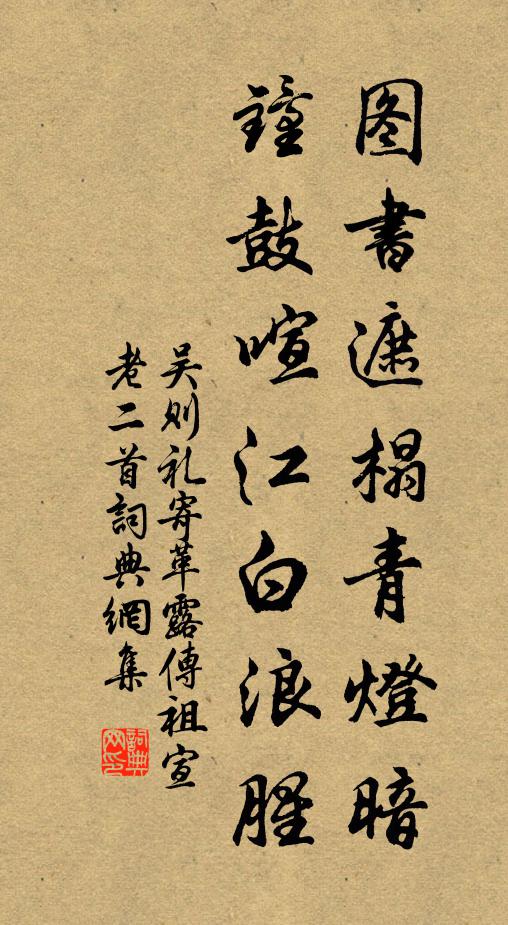 图書遮榻青燈暗
鐘鼓喧江白浪腥
吴则礼寄華露傳祖宣
老二首詞典網集
詞典网印